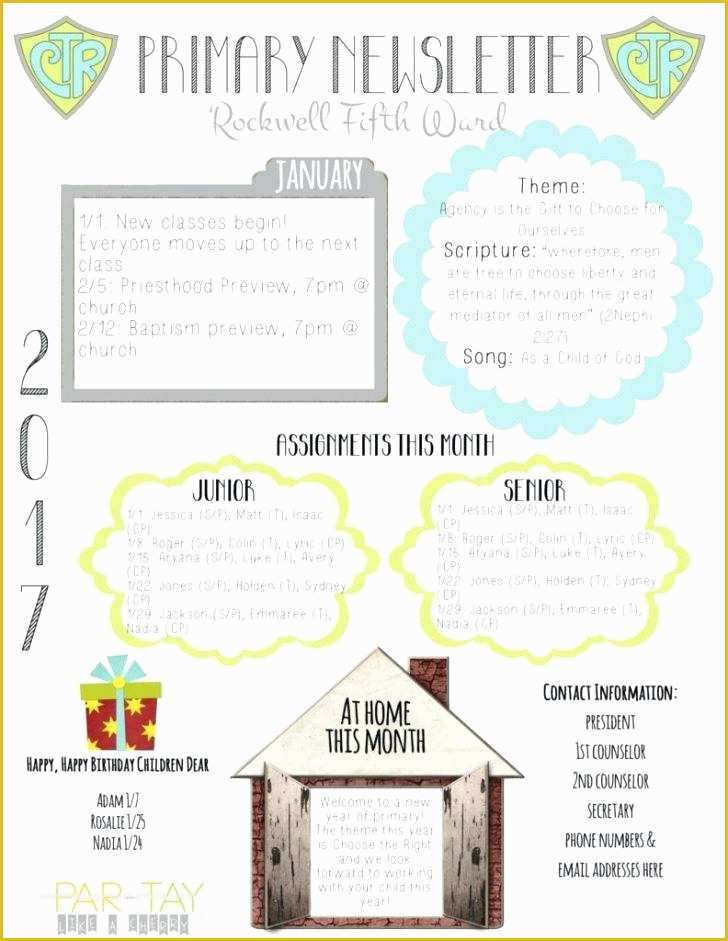 CTR
PRIMARY NEWSLETTER
CTR
Rockwell Fifth Ward
JANUARY
1/1: New classes begin!
Everyone moves up to the next
class
2/5: Priesthood Preview, 7pm @
church
2/12: Baptism preview, 7pm @
church
Theme:
Agency is the Gift to Choose for
Ourselves
Scripture: "wherefore, men
are free to choose liberty and
eternal life, through the great
mediator of all men" (2Nephi
2:27)
Song: As a Child of God
2017
ASSIGNMENTS THIS MONTH
JUNIOR
1/1: Jessica (S/P), Matt (T), Isaac
(CP)
1/8: Roger (S/P), Colin (T), Lyric (CP)
1/15: Aryana (S/P), Luke (T), Avery
(CP)
1/22: Jones (S/P), Holden (T), Sydney
(CP)
1/29: Jackson (S/P), Emmaree (T),
Nadia (CP)
SENIOR
1/1: Jessica (S/P), Matt (T), Isaac
(CP)
1/8: Roger (S/P), Colin (T), Lyric (CP)
1/15: Aryana (S/P), Luke (T), Avery
(CP)
1/22: Jones (S/P), Holden (T), Sydney
(CP)
1/29: Jackson (S/P), Emmaree (T),
Nadia (CP)
HAPPY, HAPPY BIRTHDAY CHILDREN DEAR
ADAM 1/7
ROSALIE 1/25
NADIA 1/24
AT HOME
THIS MONTH
Welcome to a new
year of primary!
The theme this year
is Choose the Right
and we look
forward to working
with your child this
year!
CONTACT INFORMATION:
PRESIDENT
1ST COUNSELOR
2ND COUNSELOR
SECRETARY
PHONE NUMBERS &
EMAIL ADDRESSES HERE
PAR-TAY
LIKE A CHERRY